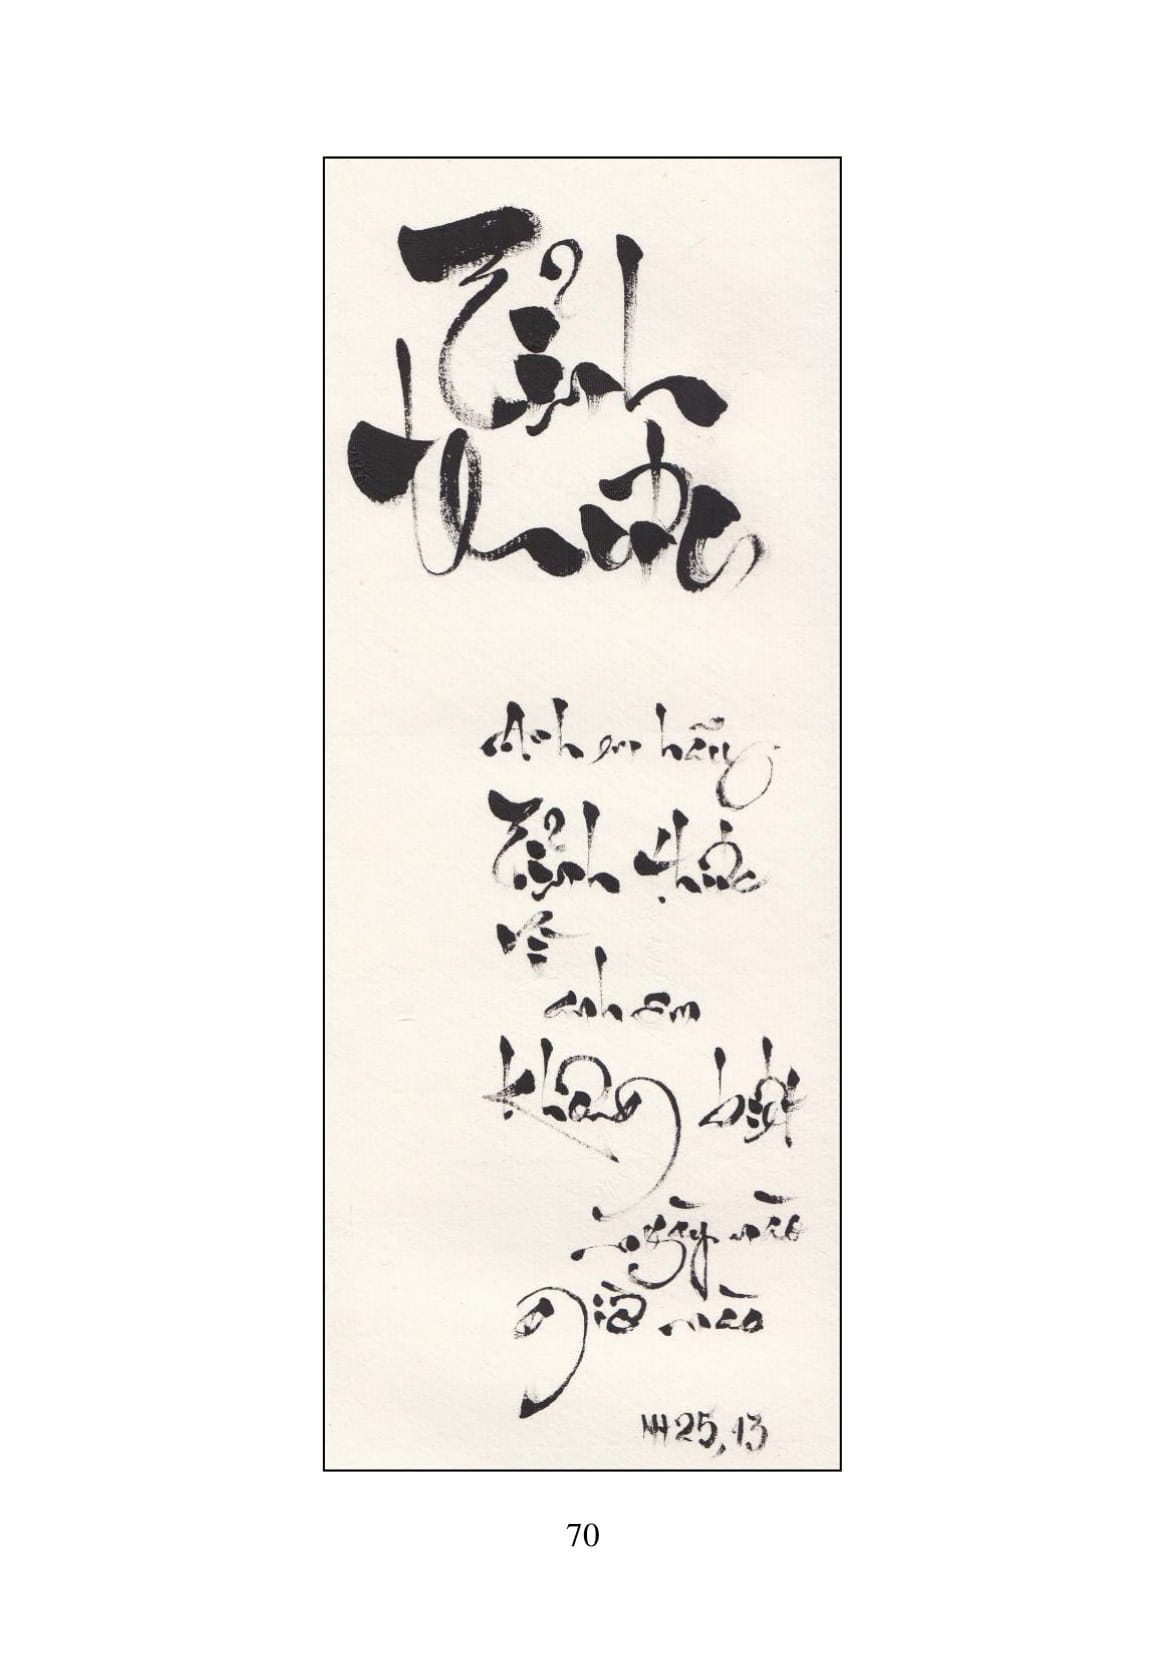 Tỉnh
thức
Anh em hãy
Tỉnh thức
vì
anh em
không biết
ngày nào
giờ nào
25, 13
70